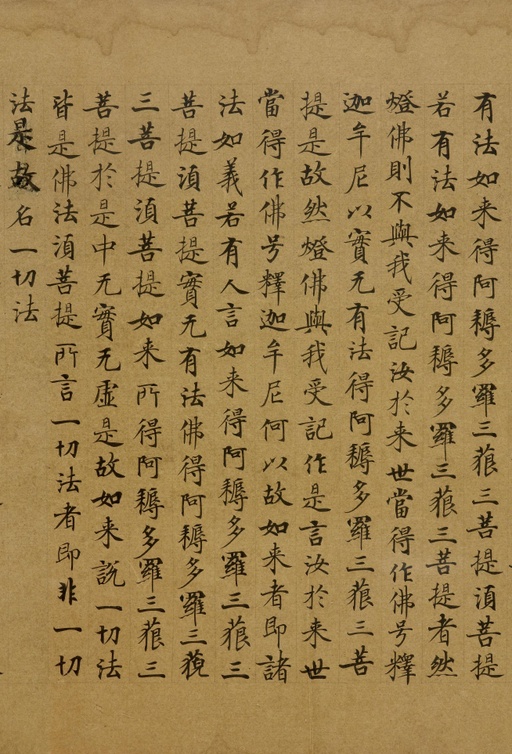 有法如来得阿耨多羅三藐三菩提湏菩提
若有法如来得阿耨多羅三藐三菩提者然
燈佛則不與我受記汝於来世當得作佛号釋
迦牟尼以實无有法得阿耨多羅三藐三菩
提是故然燈佛與我受記作是言汝於来世
當得作佛号釋迦牟尼何以故如来者即諸
法如義若有人言如来得阿耨多羅三藐三
菩提湏菩提實无有法佛得阿耨多羅三藐
三菩提湏菩提如来所得阿耨多羅三藐三
菩提於是中无實无虛是故如来說一切法
皆是佛法湏菩提所言一切法者即非一切
法是故名一切法